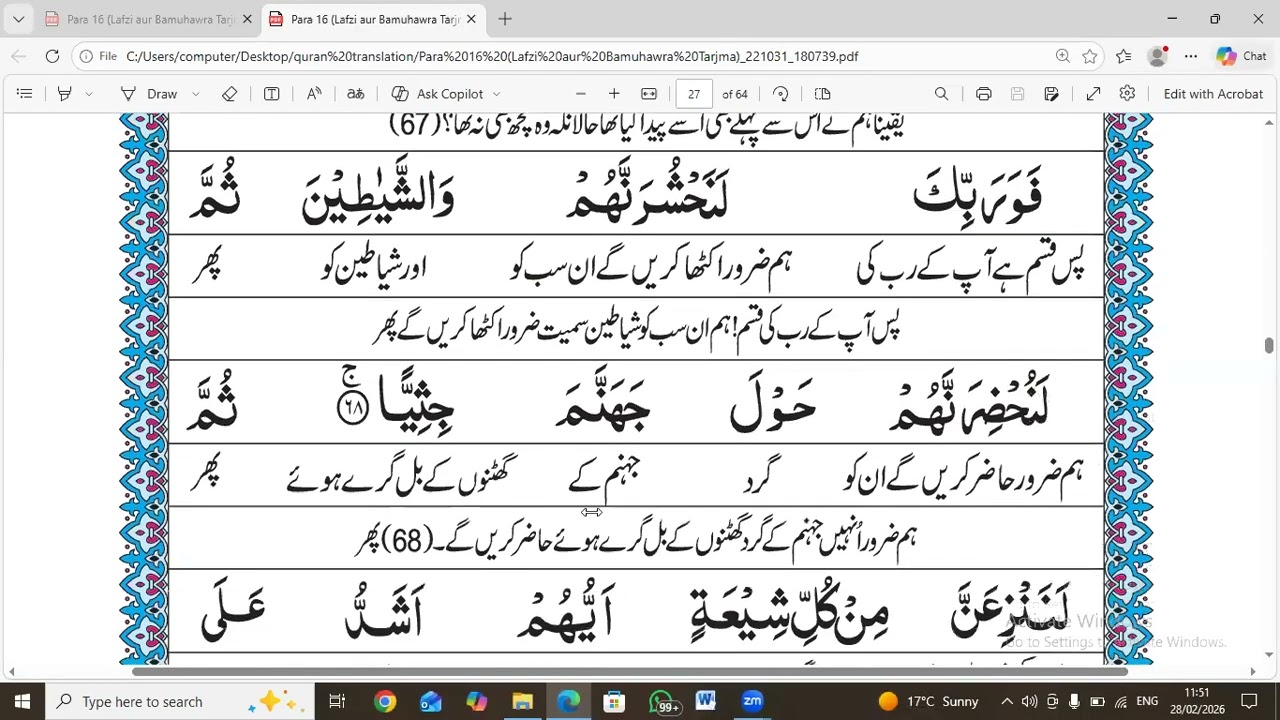 Para 16 (Lafzi aur Bamuhawra Tarj
Para 16 (Lafzi aur Bamuhawra Tarjr
File
C:/Users/computer/Desktop/quran%20translation/Para%2016%20(Lafzi%20aur%20Bamuhawra%20Tarjma)_221031_180739.pdf
Chat
Draw
Ask Copilot
27 of 64
Edit with Acrobat
یقیناً ہم نے اس سے پہلے بھی اسے پیدا کیا تھا حالانکہ وہ کچھ بھی نہ تھا؟(67)
فَوَرَبِّكَ لَنَحْشُرَنَّهُمْ وَالشَّيٰطِيْنَ ثُمَّ
پس قسم ہے آپ کے رب کی ہم ضرور اکٹھا کریں گے ان سب کو اور شیاطین کو پھر
پس آپ کے رب کی قسم! ہم ان سب کو شیاطین سمیت ضرور اکٹھا کریں گے پھر
لَنُحْضِرَنَّهُمْ حَوْلَ جَهَنَّمَ جِثِيًّا ۚ ﴿٦٨﴾ ثُمَّ
ہم ضرور حاضر کریں گے ان کو گرد جہنم کے گھٹنوں کے بل گرے ہوئے پھر
ہم ضرور اُنہیں جہنم کے گرد گھٹنوں کے بل گرے ہوئے حاضر کریں گے۔(68) پھر
لَنَنْزِعَنَّ مِنْ كُلِّ شِيْعَةٍ اَيُّهُمْ اَشَدُّ عَلَى
Activate Windows
Go to Settings to activate Windows.
Type here to search
99+
W
zm
17°C Sunny
ENG
11:51
28/02/2026